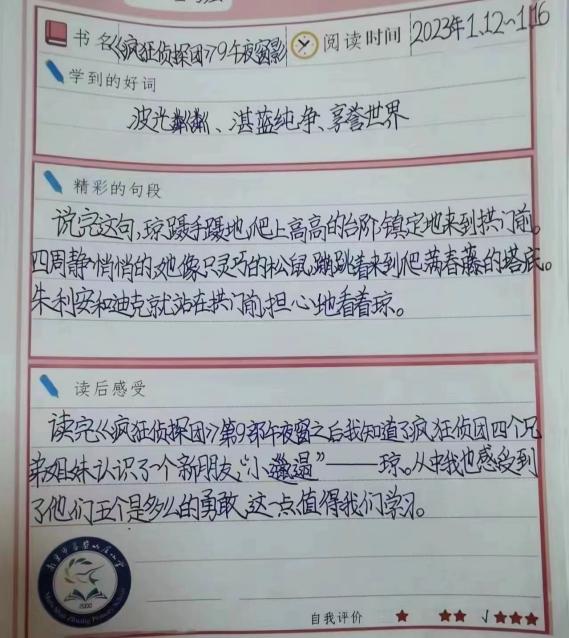 书名《疯狂侦探团》9午夜窗影 阅读时间 2023年1.12~1.16
学到的好词
波光粼粼、湛蓝纯净、享誉世界
精彩的句段
说完这句,琼蹑手蹑地爬上高高的台阶镇定地来到拱门前。
四周静悄悄的,她像只灵巧的松鼠,蹦跳着来到爬满春藤的塔底。
朱利安和迪克就站在拱门前,担心地看着琼。
读后感受
读完《疯狂侦探团》第9部午夜窗之后我知道了疯狂侦团四个兄
弟姐妹认识了一个新朋友,“小邋遢”——琼。从中我也感受到
了他们五个是多么的勇敢,这一点值得我们学习。
2000
自我评价 ★ ★★ √★★★